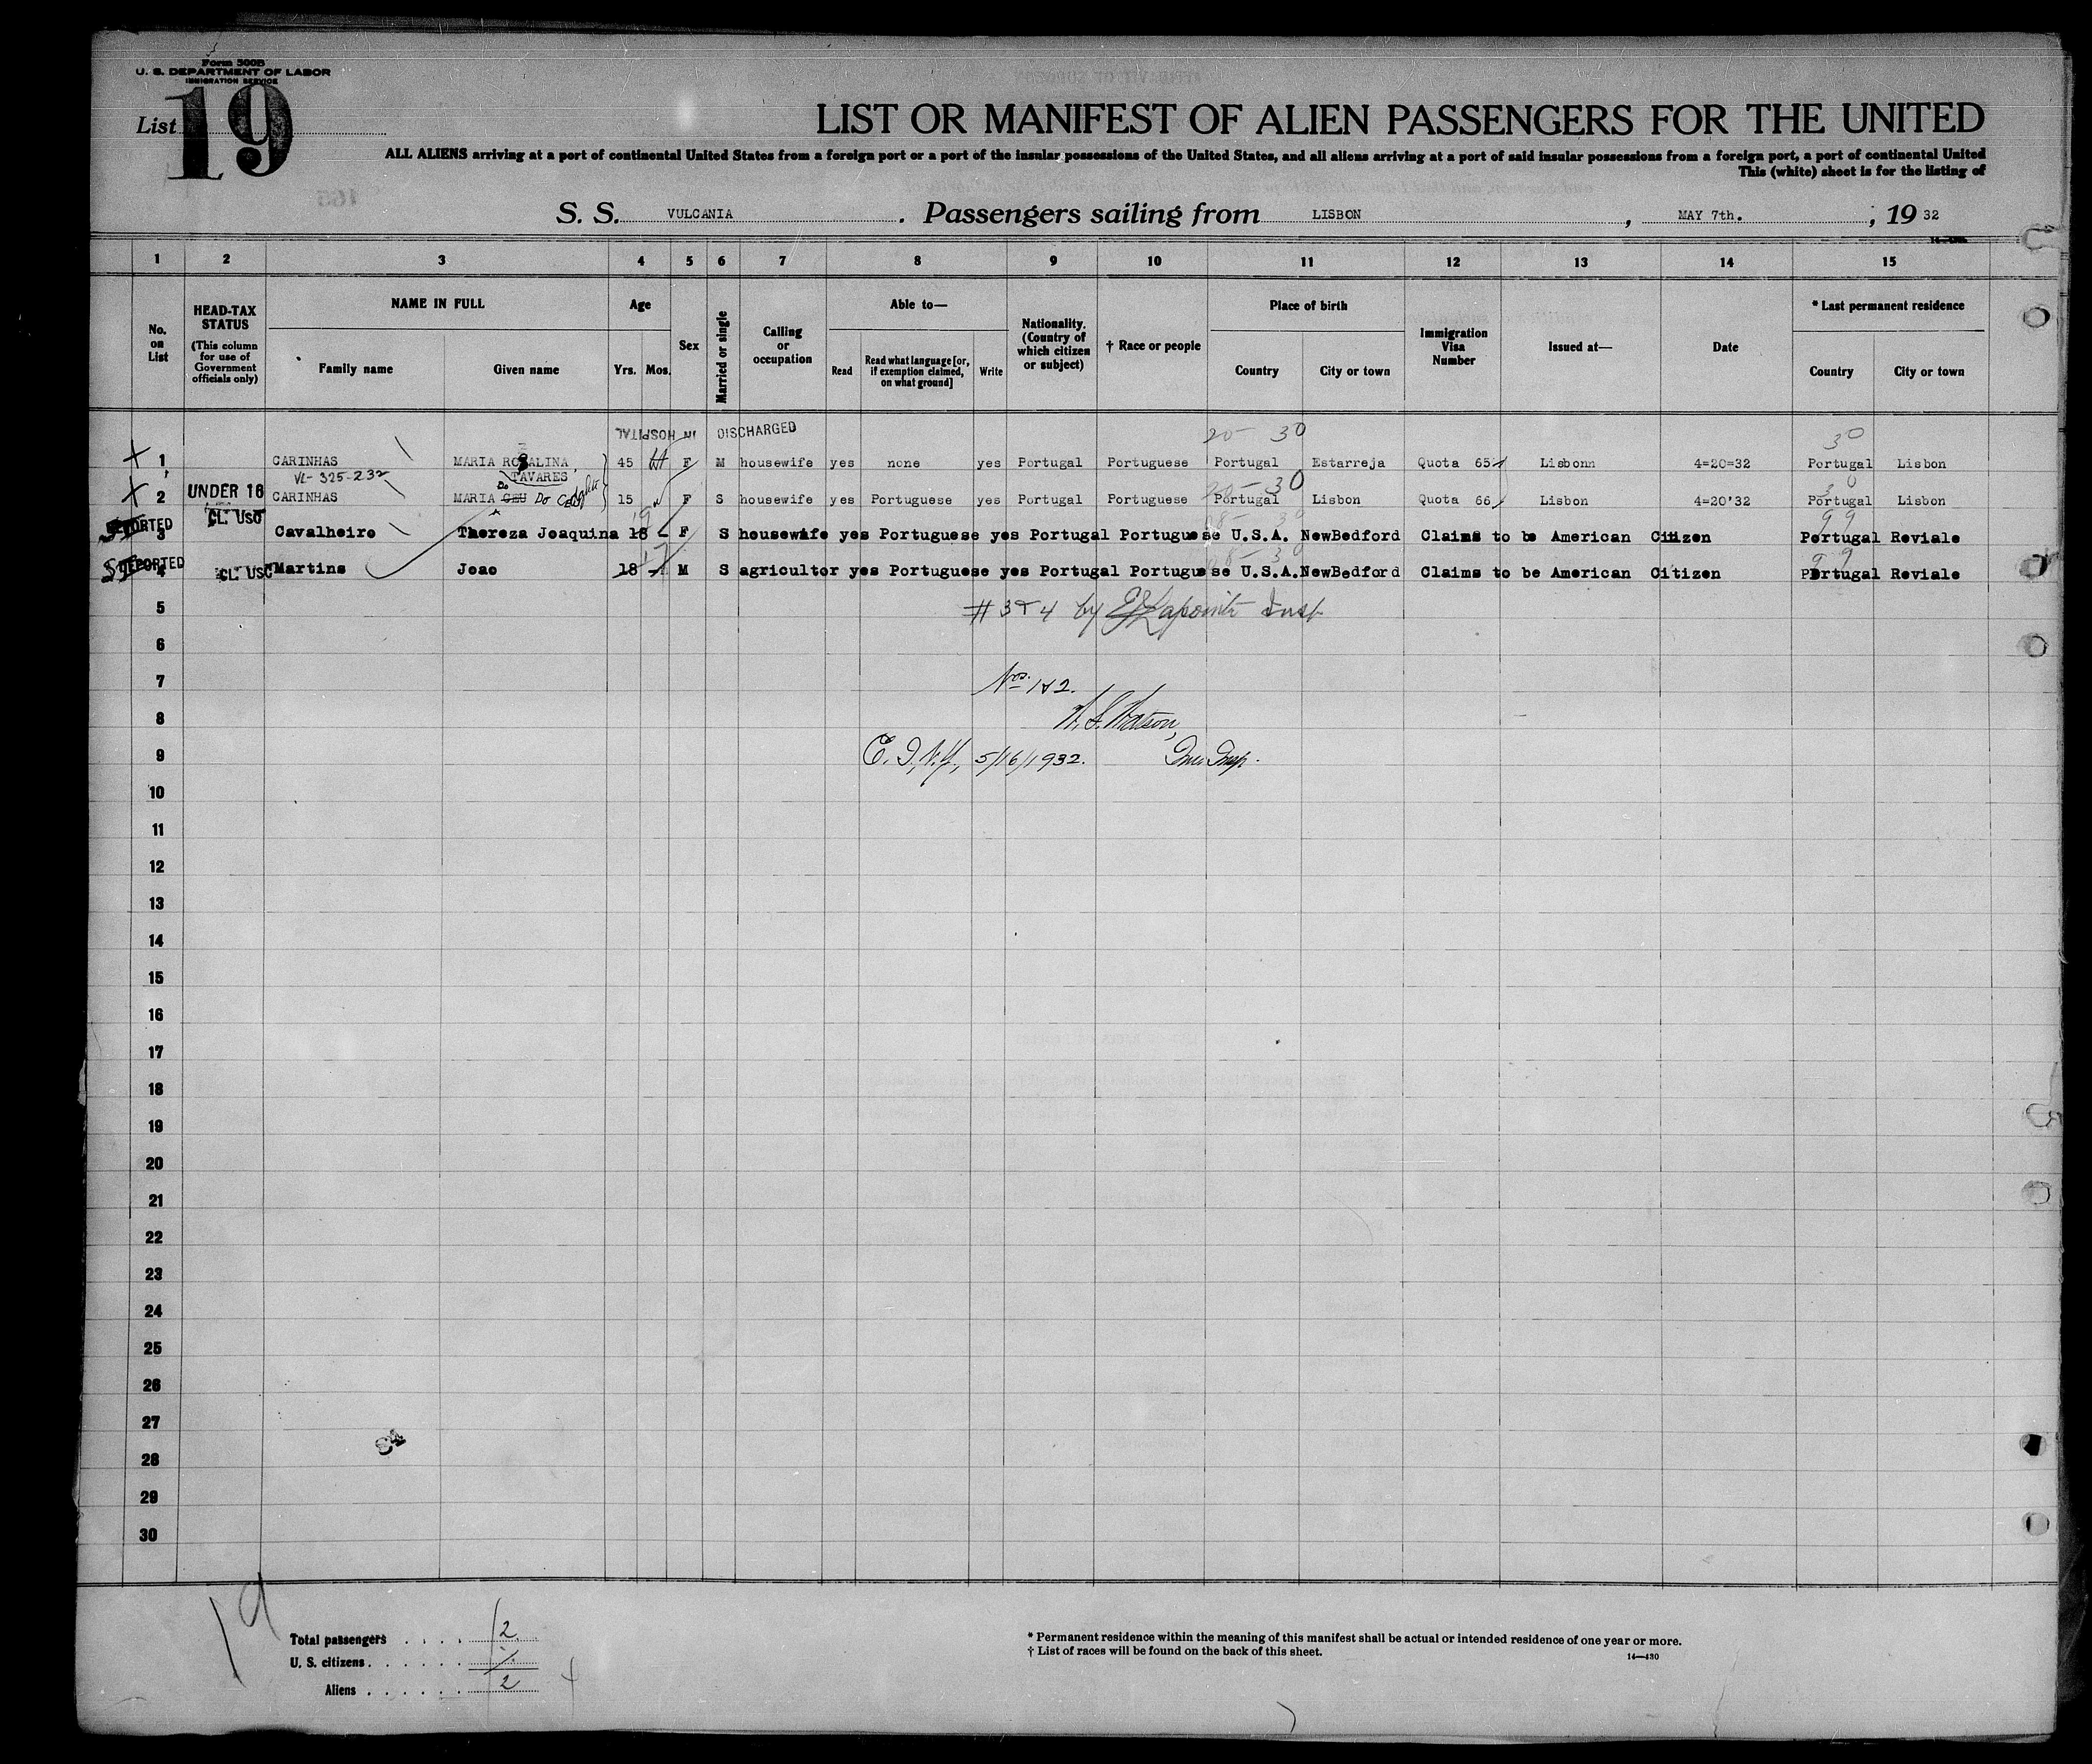 Form 500B
U. S. DEPARTMENT OF LABOR
IMMIGRATION SERVICE
List 19
LIST OR MANIFEST OF ALIEN PASSENGERS FOR THE UNITED
ALL ALIENS arriving at a port of continental United States from a foreign port or a port of the insular possessions of the United States, and all aliens arriving at a port of said insular possessions from a foreign port, a port of continental United
This (white) sheet is for the listing of
S. S. VULCANIA. Passengers sailing from LISBON, MAY 7th., 19 32
1 2 3 4 5 6 7 8 9 10 11 12 13 14 15
No. on List
HEAD-TAX STATUS
(This column for use of Government officials only)
NAME IN FULL
Family name Given name
Age
Yrs. Mos.
Sex
Married or single
Calling or occupation
Able to—
Read Read what language [or, if exemption claimed, on what ground] Write
Nationality. (Country of which citizen or subject)
† Race or people
Place of birth
Country City or town
Immigration Visa Number
Issued at—
Date
* Last permanent residence
Country City or town
IN HOSPITAL DISCHARGED 20 - 30 30
X 1 CARINHAS MARIA ROSALINA 45 F M housewife yes none yes Portugal Portuguese Portugal Estarreja Quota 65 Lisbonn 4=20=32 Portugal Lisbon
VL-325-232 TAVARES 30
X 2 UNDER 16 CARINHAS MARIA CEU Do 15 F S housewife yes Portuguese yes Portugal Portuguese Portugal Lisbon Quota 66 Lisbon 4=20'32 Portugal Lisbon
CL. USC 19 99
3 Cavalheiro Thereza Joaquina 18 F S housewife yes Portuguese yes Portugal Portuguese U.S.A. NewBedford Claims to be American Citizen Portugal Reviale
17 99
4 CL. USC Martins Joao 18 M S agricultor yes Portuguese yes Portugal Portuguese U.S.A. NewBedford Claims to be American Citizen Portugal Reviale
5 # 3 & 4 by Lapointe Insp
6
7 Nos. 1 & 2.
8 Watson,
9 E. I., N.Y., 5/16/1932. Imm. Insp.
10
11
12
13
14
15
16
17
18
19
20
21
22
23
24
25
26
27
28
29
30
84
19
Total passengers . . . . 2
U. S. citizens . . . . . .
Aliens . . . . . . 2
* Permanent residence within the meaning of this manifest shall be actual or intended residence of one year or more.
† List of races will be found on the back of this sheet.
14—430